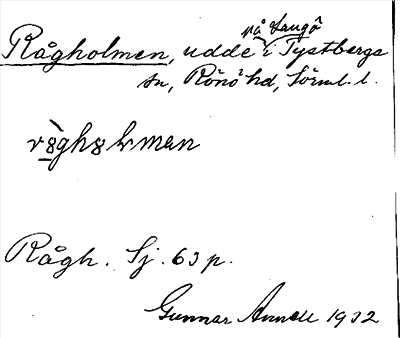 Rågholmen, udde på Långö i Tystberga
sn, Rönö hd, Sörml. l.
Rågh. Sj. 63 p.
Gunnar Annell 1932